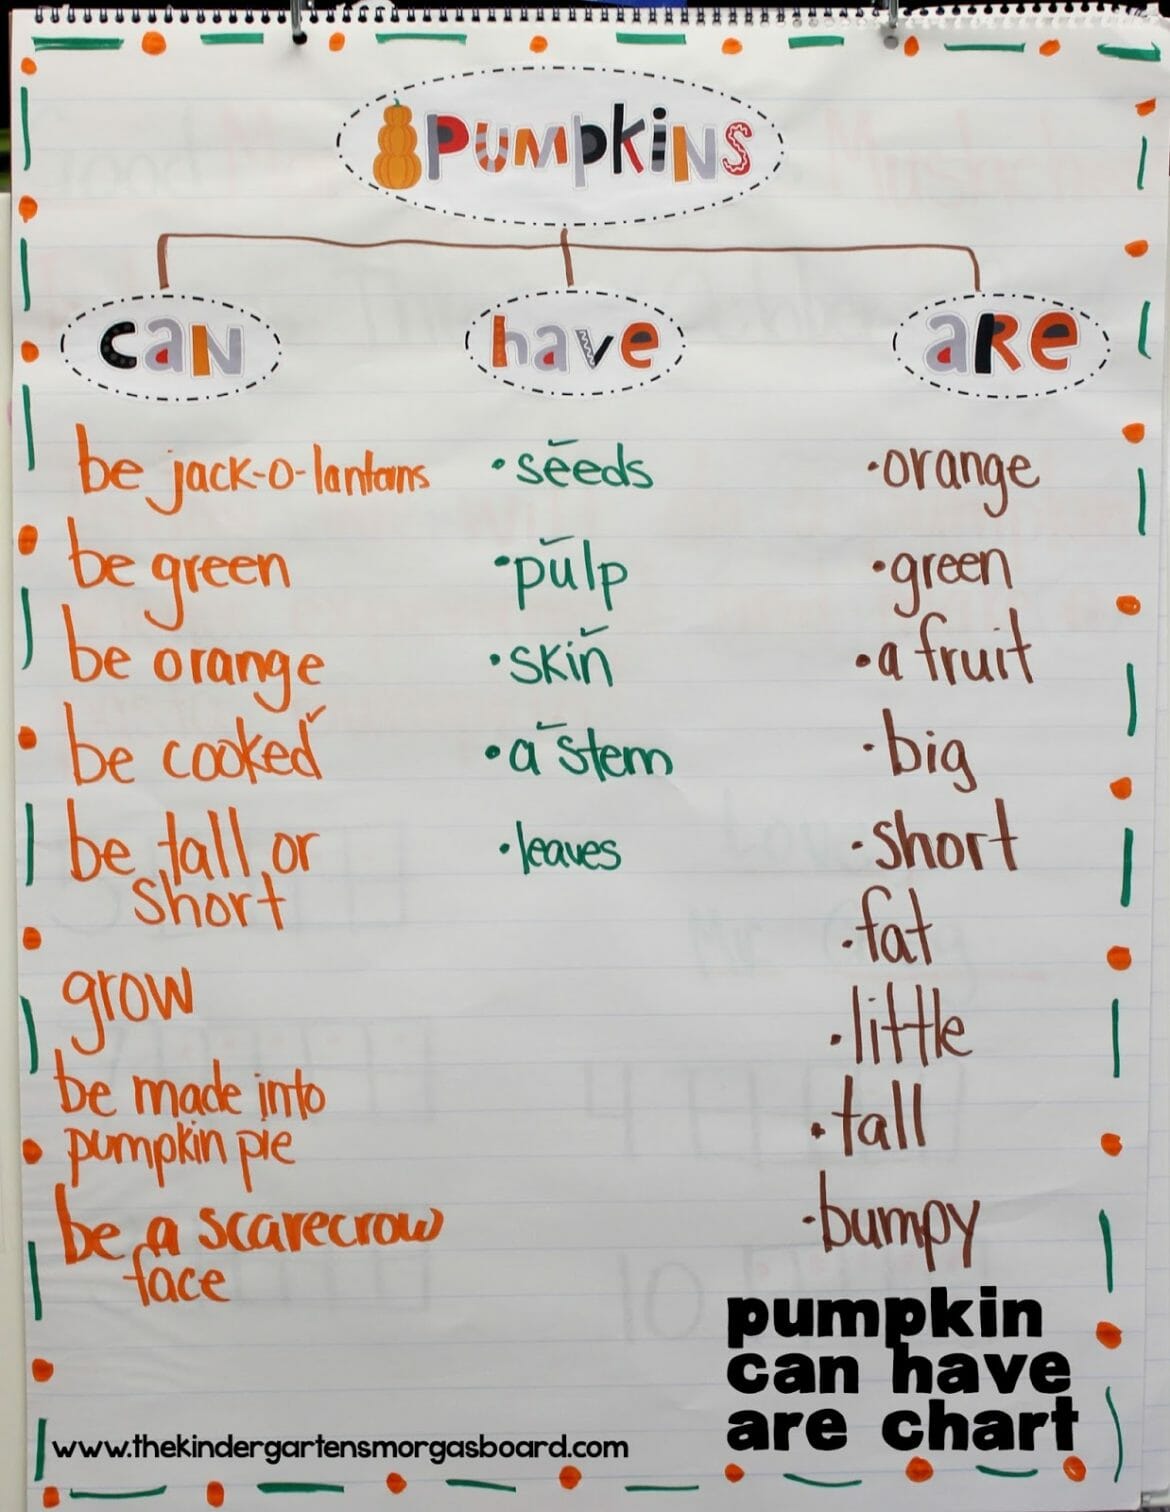 PUMPKINS
CAN
have
aRe
be jack-o-lantans
be green
be orange
be cooked
be tall or
short
grow
be made into
pumpkin pie
be a scarecrow
face
•seeds
•pulp
•skin
•a stem
•leaves
•orange
•green
•a fruit
•big
•short
•fat
•little
•tall
•bumpy
pumpkin
can have
are chart
www.thekindergartensmorgasboard.com